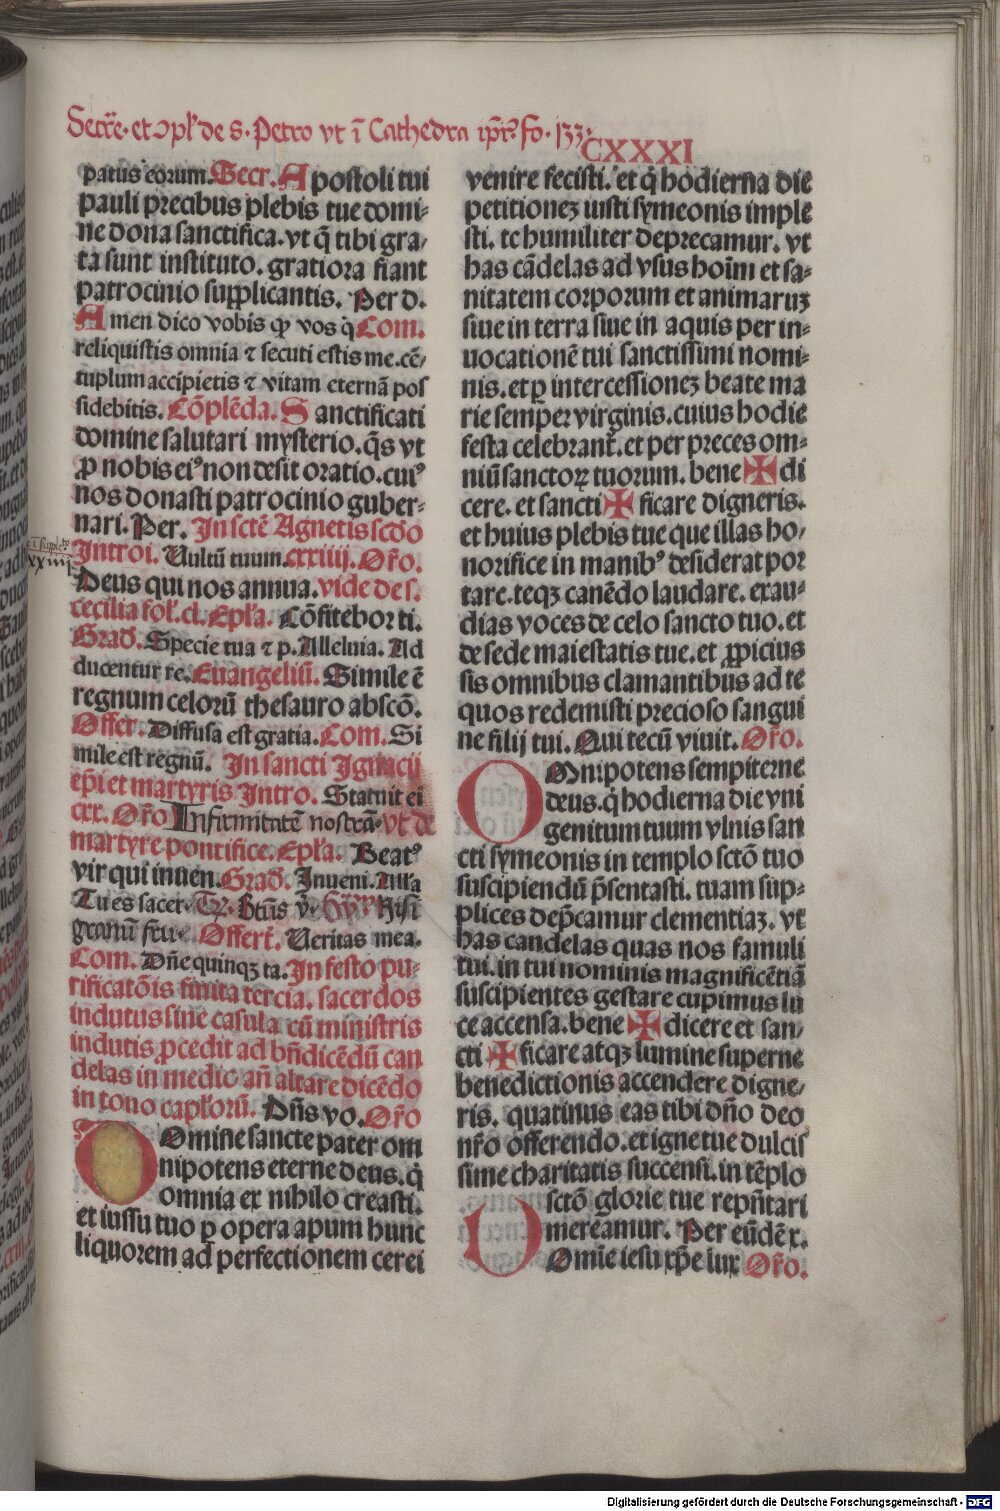 Secr̃e. et ↄpl̕ de s. Petro vt ĩ Cathedra ip̃r̃. fo. 133.
CXXXI
patus eorum. Secr. Apostoli tui
pauli precibus plebis tue domi-
ne dona sanctifica. vt q̃ tibi gra-
ta sunt instituto. gratiora fiant
patrocinio supplicantis. Per d.
Amen dico vobis ꝙ vos q̇ Com.
reliquistis omnia ⁊ secuti estis me. cẽ-
tuplum accipietis ⁊ vitam eternã pos
sidebitis. Cõplẽda. Sanctificati
domine salutari mysterio. q̃s vt
ꝓ nobis eiꝰ non desit oratio. cuiꝰ
nos donasti patrocinio guber-
nari. Per. In sctẽ Agnetis scdo
Introi. Uultũ tuum. cxxiiij. Or̃o.
Deus qui nos annua. vide de s.
cecilia fol̕. cl. Epl̕a. Cõfitebor ti.
Grad. Specie tua ⁊ p. Alleluia. Ad
ducentur re. Euangeliũ. Simile ẽ
regnum celorũ thesauro abscõ.
Offer. Diffusa est gratia. Com. Si
mile est regnũ. In sancti Ignacij
ep̃i et martyris Intro. Statuit ei
cxx. Or̃o Infirmitatẽ nostrã. vt de
martyre pontifice. Epl̕a. Beatꝰ
vir qui inuen. Grad. Inueni. All̕a
Tu es sacer. Tr̃. Bt̃us v̕. Nisi
granũ fru. Offert̃. Ueritas mea.
Com. Dñe quinqꝫ ta. In festo pu-
rificatõis finita tercia. sacerdos
indutus sine casula cũ ministris
indutis ꝓcedit ad bñdicẽdũ can
delas in medio añ altare dicẽdo
in tono capl̕orũ. Dñs vo. Or̃o
Domine sancte pater om
nipotens eterne deus. q̇
omnia ex nihilo creasti.
et iussu tuo ꝑ opera apum hunc
liquorem ad perfectionem cerei
venire fecisti. et q̇ hodierna die
petitionez iusti symeonis imple
sti. te humiliter deprecamur. vt
has cãdelas ad vsus hoĩm et sa-
nitatem corporum et animaruꝫ
siue in terra siue in aquis per in-
uocationẽ tui sanctissimi nomi-
nis. et ꝑ intercessionez beate ma
rie semper virginis. cuius hodie
festa celebrant̃. et per preces om-
niũ sanctoꝝ tuorum. bene ✠ di
cere. et sancti ✠ ficare digneris.
et huius plebis tue que illas ho-
norifice in manibꝰ desiderat por
tare. teqꝫ canẽdo laudare. exau-
dias voces de celo sancto tuo. et
de sede maiestatis tue. et ꝓpicius
sis omnibus clamantibus ad te
quos redemisti precioso sangui
ne filij tui. Qui tecũ viuit. Or̃o.
Omnipotens sempiterne
deus. q̇ hodierna die vni
genitum tuum vlnis san
cti symeonis in templo sctõ tuo
suscipiendũ p̃sentasti. tuam sup-
plices dep̃camur clementiaꝫ. vt
has candelas quas nos famuli
tui. in tui nominis magnificẽtiã
suscipientes gestare cupimus lu
ce accensa. bene ✠ dicere et san-
cti ✠ ficare atqꝫ lumine superne
benedictionis accendere digne-
ris. quatinus eas tibi dño deo
nr̃o offerendo. et igne tue dulcis
sime charitatis succensi. in tẽplo
sctõ glorie tue rep̃ntari
mereamur. Per eũdẽ x.
Domĩe iesu xp̃e lux Or̃o.